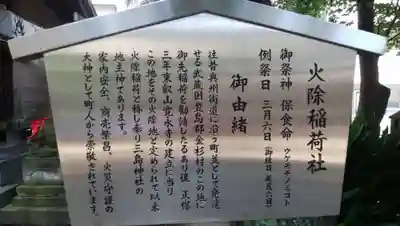 火除稲荷社
御祭神 保食命 ウケモチノミコト
例祭日 三月六日
御由緒
往昔奥州街道に沿い町並として発達
せる武蔵国豊島郡金杉村のこの地に
御生稲荷を勧請したるあり後 正保
三年東叡山寛永寺の建立に当り
この地をその火除地と定められて以来
火除稲荷と称し奉り三島神社の
地主神であります。
家内安全、商売繁昌、火災守護の
大神として町人から崇敬されています。